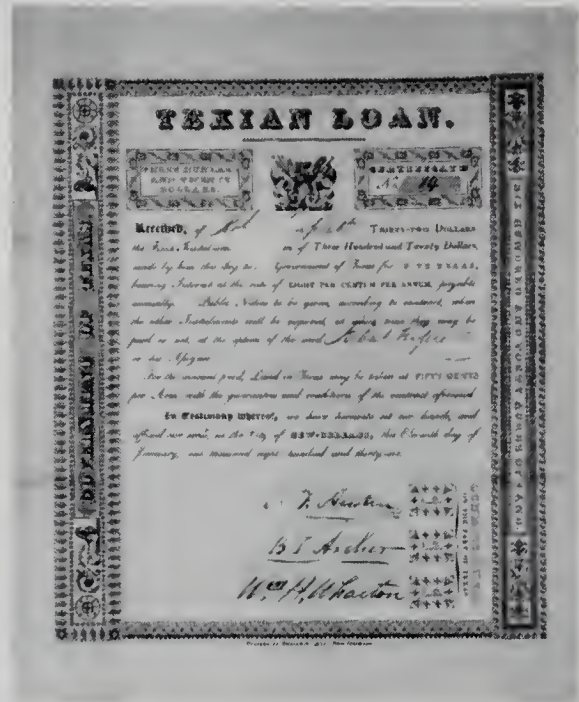 TEXIAN LOAN.
THREE HUNDRED
AND TWENTY
DOLLARS.
CERTIFICATE
No. 14
Received, of THIRTY-TWO DOLLARS
the First Instalment of Three Hundred and Twenty Dollars,
made by him this day to Government of Texas for FIVE YEARS,
bearing Interest at the rate of EIGHT PER CENTUM PER ANNUM, payable
annually. Public Notice to be given, according to contract, when
the other Instalments will be required, at which time they may be
paid or not, at the option of the said
or his Assigns
For the amount paid, Land in Texas may be taken at FIFTY CENTS
per Acre with the guarantees and conditions of the contract aforesaid
In Testimony whereof, we have hereunto set our hands, and
affixed our seals, in the City of NEW-ORLEANS, this Eleventh day of
January, one thousand eight hundred and thirty-six.
S. F. Austin
B T Archer
Wm H. Wharton
GOVERNMENT OF TEXAS.